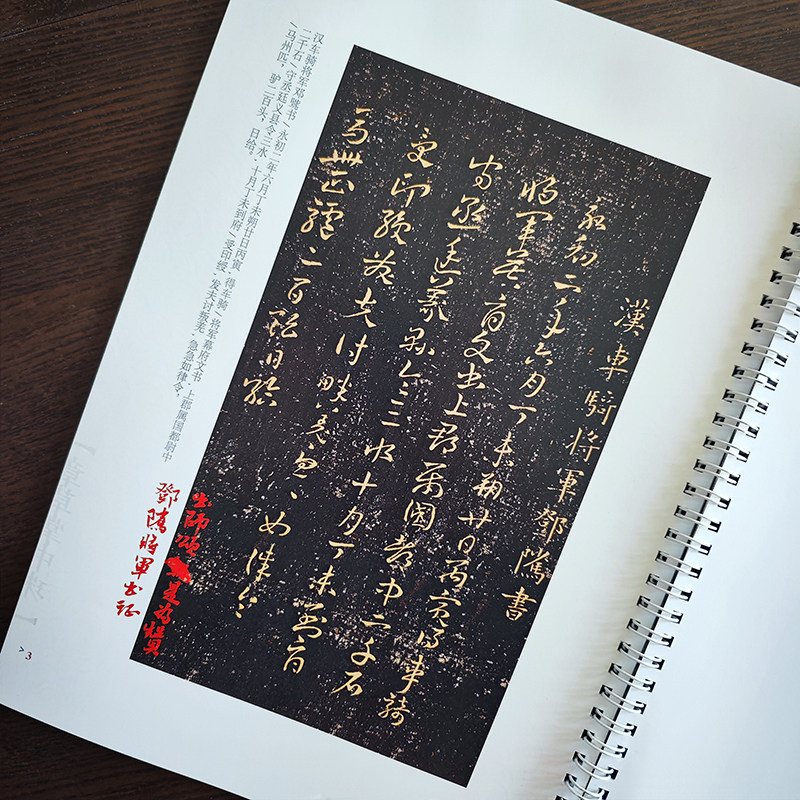 漢車騎將軍鄧隲書
永初二年六月丁未朔廿日丙寅得車騎
將軍莫府文書上郡屬國都尉中二千石
守丞廷義縣令三水十月丁未到府
受印綬發夫討畔羌急〻如律令
馬卌匹驢二百頭日給
出师颂 是为赞
鄧隲將軍出征
汉车骑将军邓骘书/永初二年六月丁未朔廿日丙寅,得车骑/将军幕府文书,上郡属国都尉中
二千石/守丞廷义县令三水,十月丁未到府/受印绶,发夫讨叛羌,急急如律令,
/马州匹,驴二百头,日给。
> 3